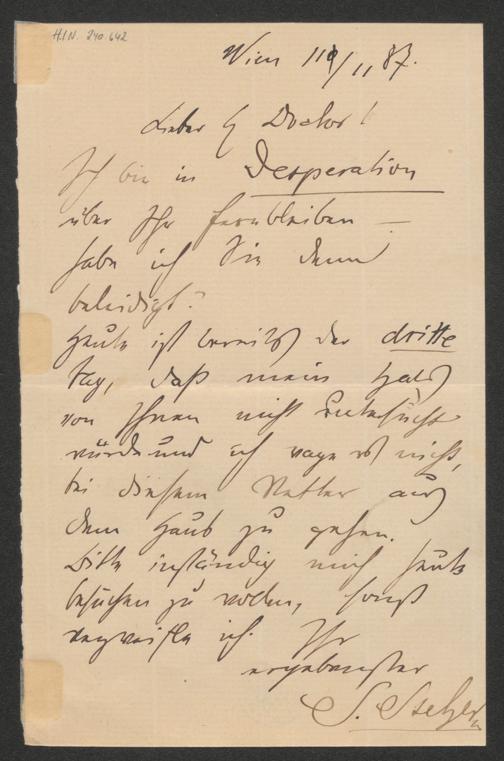 H.I.N. 240.642
Wien 11/11 87.
Lieber H Doctor!
Ich bin in Desperation
über Ihr fernbleiben –
habe ich Sie denn
beleidigt?
Heute ist bereits der dritte
Tag, daß mein Hals
von Ihnen nicht untersucht
würde und ich wage es nicht,
bei diesem Wetter aus
dem Haus zu gehen.
Bitte inständig mich heute
besuchen zu wollen, sonst
verzweifle ich. Ihr
ergebenster
S.